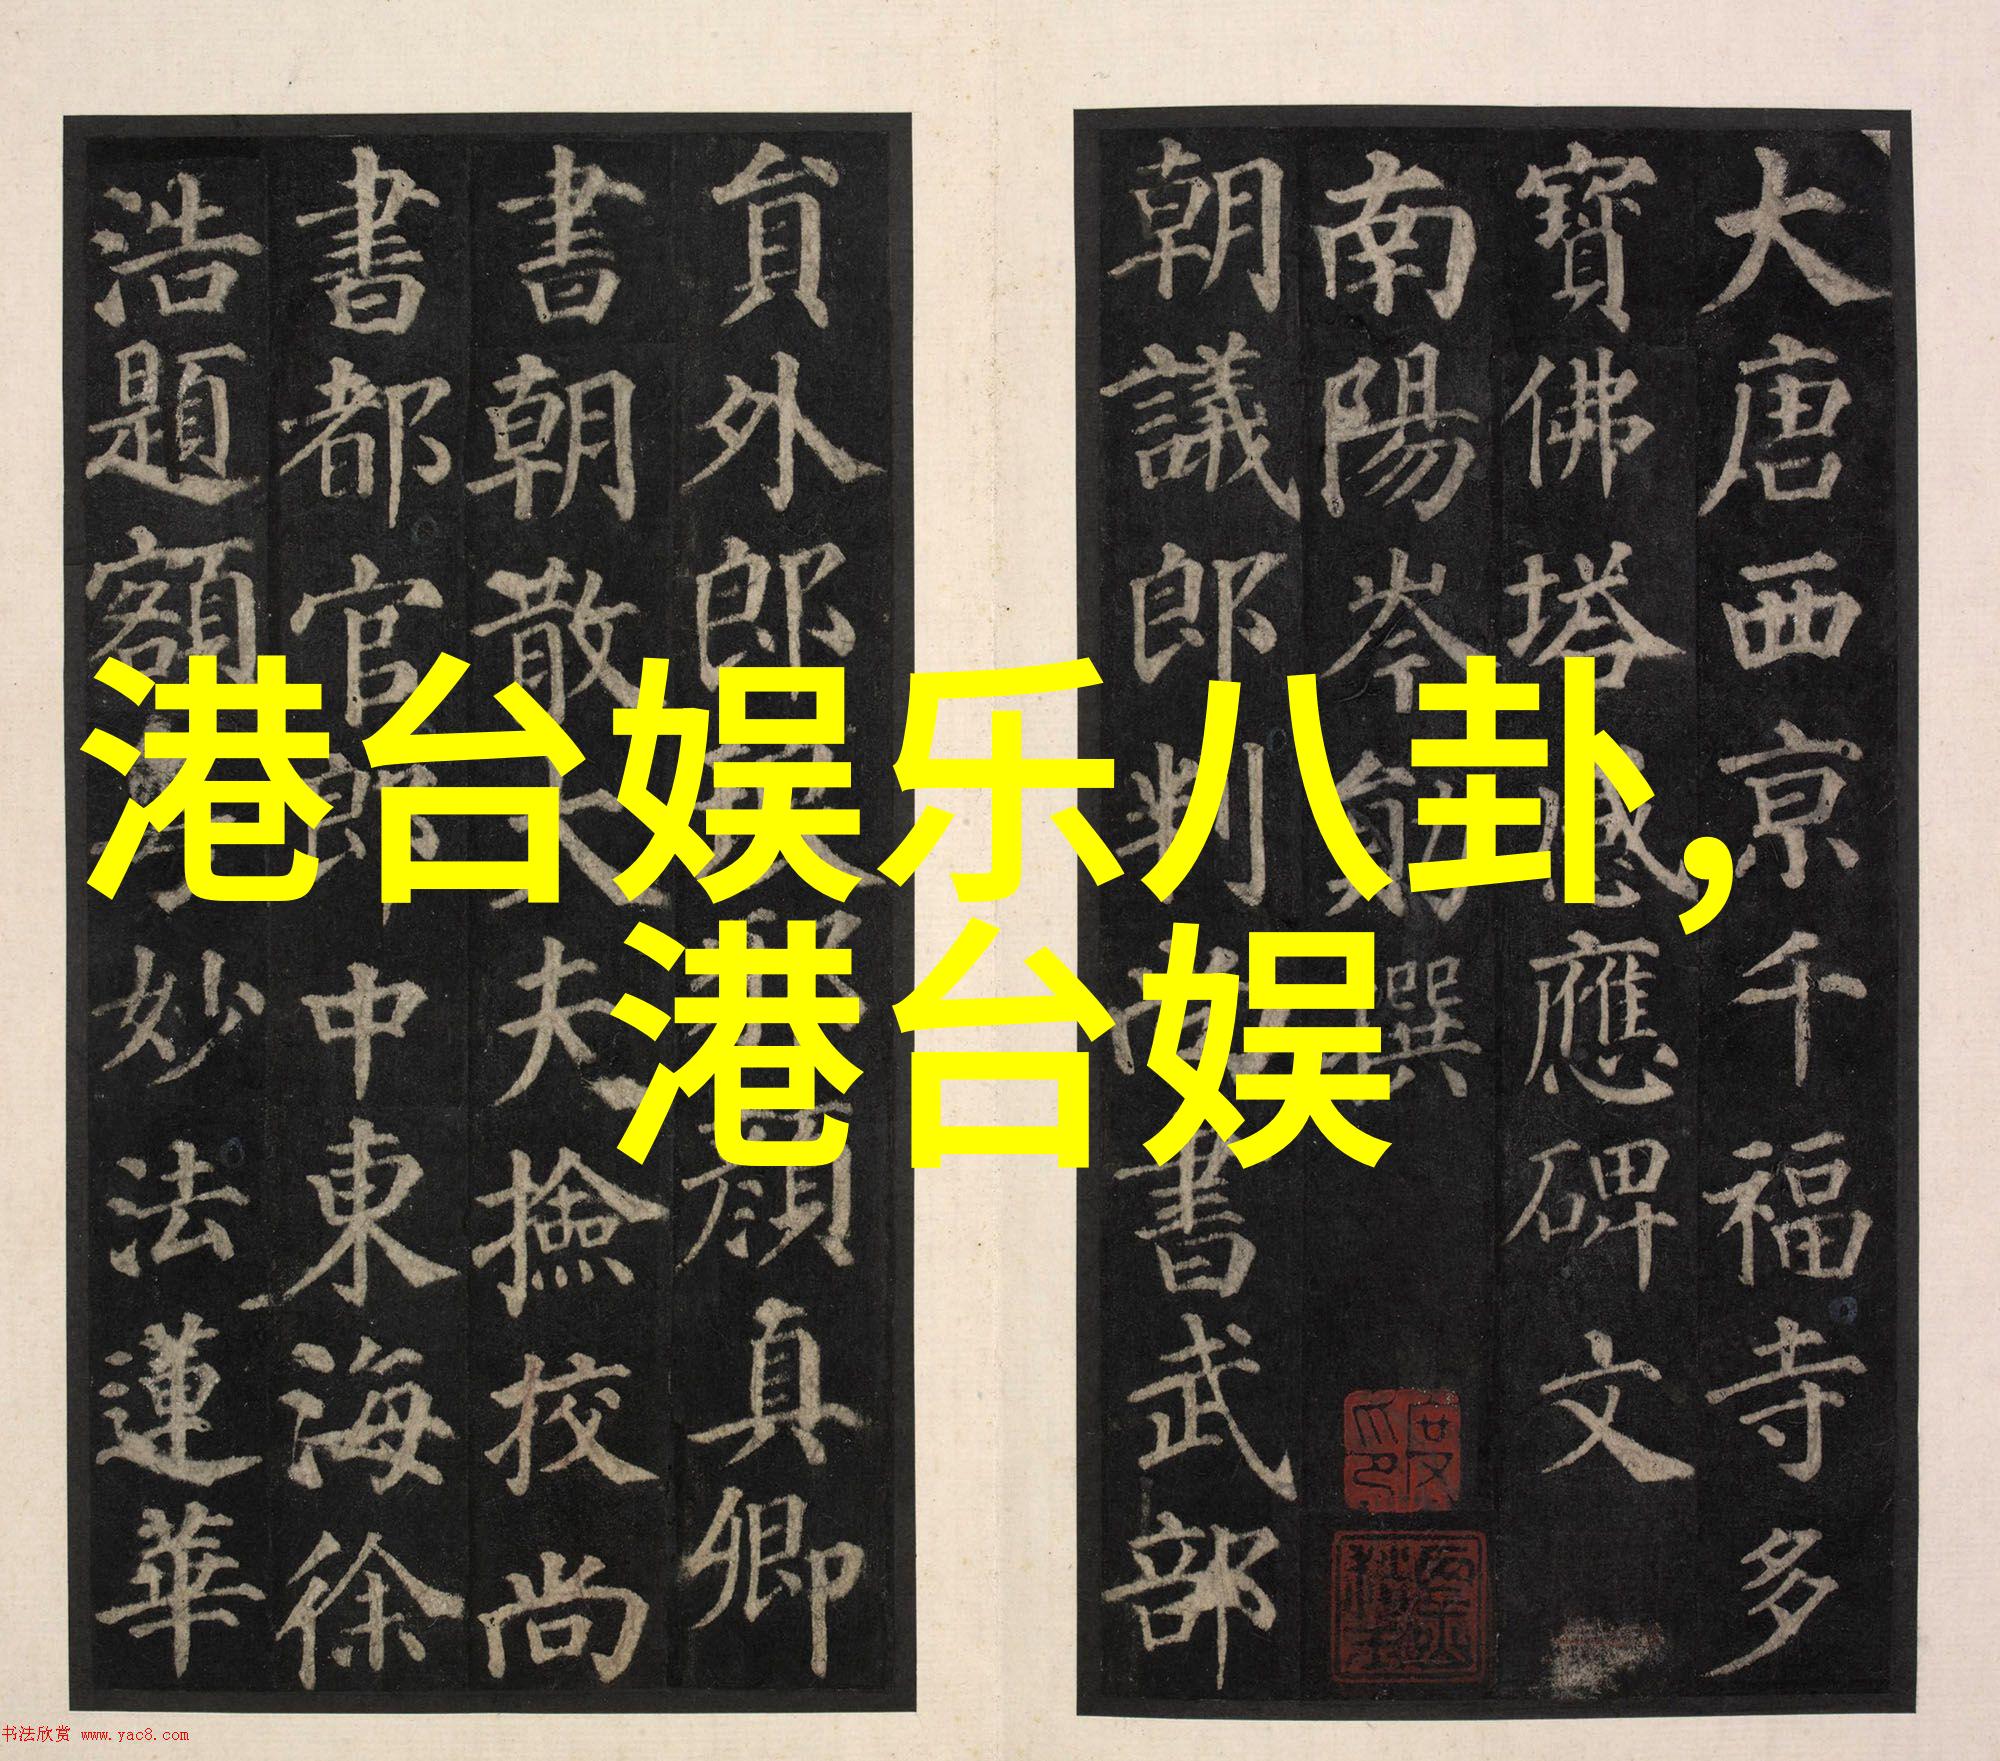 大唐西京千福寺多
寶佛塔感應碑文
南陽岑勛撰
朝議郎判尚書武部
員外郎琅邪顏真卿
書朝散大夫撿校尚
書都官郎中東海徐
浩題額
妙法蓮華
港台娱乐八卦,
港台娱
书法欣赏 www.yac8.com